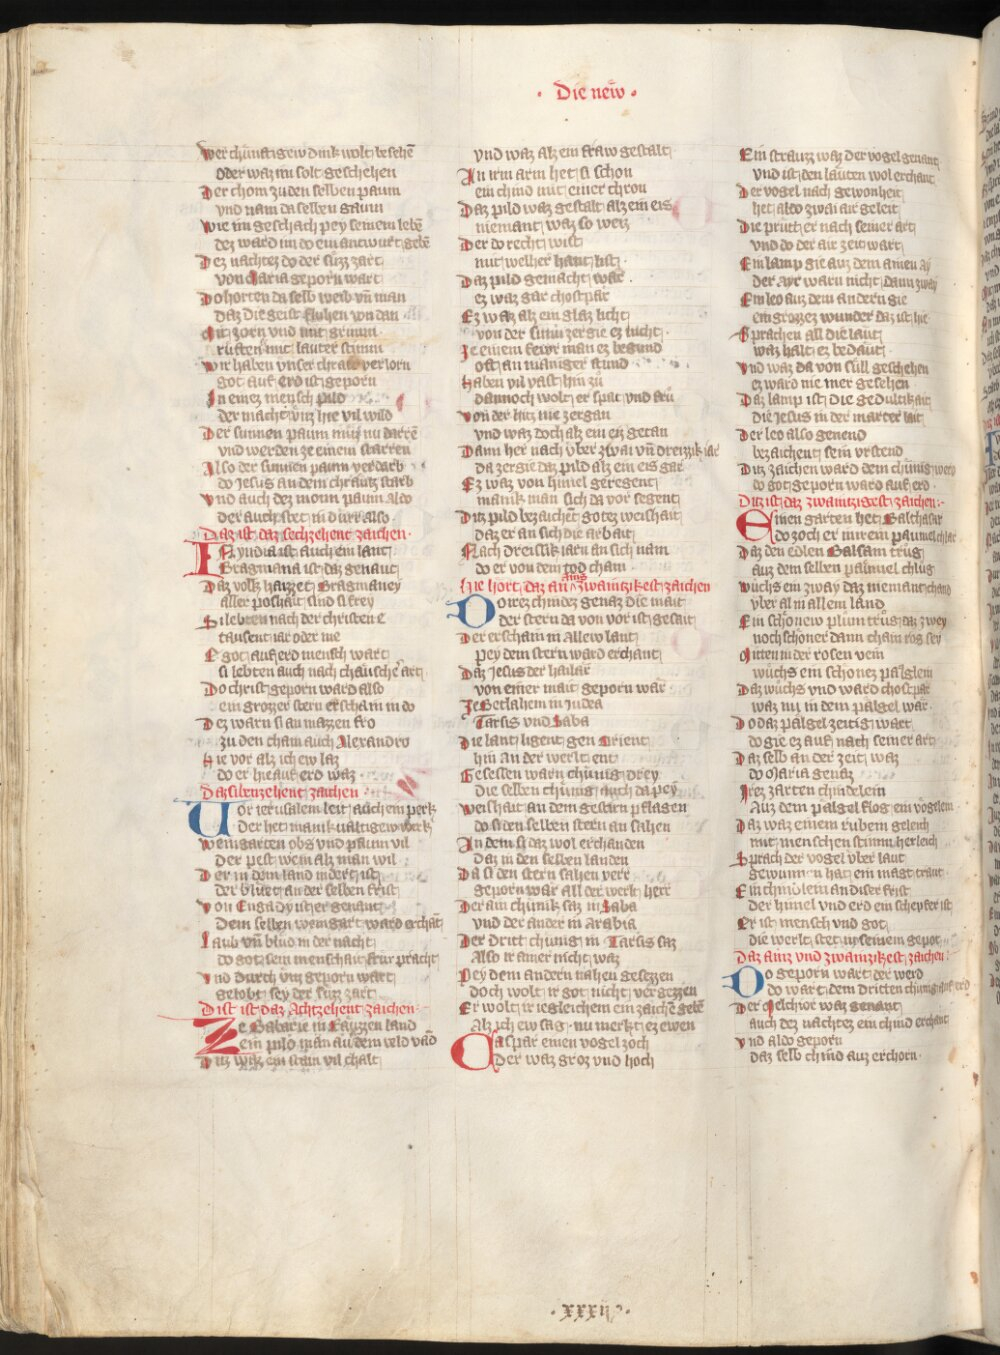 · Die new ·
Wer chunftigew dink wolt besehē
oder waz im solt geschehen
Der chom zu den selben paum
vnd nam da selben gaum
Wie im geschach pey seinem lebē
dez ward im do ein antwurt gebē
Dez nachtez do der suzz zart
von Maria geporn wart
Do horten da selb weib vn̄ man
daz die geist fluhen von dan
Mit zorn vnd mit grimm
ruften mit lauter stimm
Wir haben vnser chraft verlorn
got auf erd ist geporn
In einez mensch pild
der macht vnz hie vil wild
Der sunnen paum muz nu darrē
vnd werden ze einem starren
Also der sunnen paum verdarb
do Jesus an dem chrautz starb
Vnd auch dez mon paum also
der auch stet in durr also
Daz ist daz sechzehent zaichen ·
IN yndia ist auch ein lant
Bragmana ist daz genant
Daz volk haizzet Bragmaney
aller poshait sind si frey
Si lebten nach der christen e
tausent iar oder me
E got auf erd mensch wart
si lebten auch nach christē art
Do christ geporn ward also
ein grozzer stern erscham in do
Dez warn si an mazzen fro
zu den cham auch Alexandro
Hie vor alz ich ew laz
do er hie auf erd waz ·
Daz sibenzehent zaichen
Vor ierusalem leit auch ein perk
der het manikualtigew werk
Weingarten obs vnd paum vil
Der pest wein alz man wil
Der in dem land indert ist
der bluet an der selben frist
Von Engady ist er genant
Dem selben weingart ward erchāt
Laub vn̄ blud in der nacht
do got sein menschait furpracht
Vnd durch vnz geporn wart
gelobt sey der suzz zart
Dist ist daz Achtzehent zaichen
Ze Babarie in kayzzen land
ein pild man auf dem veld vand
Diz waz ein stain vil chalt
vnd waz alz ein fraw gestalt
An irm arm het si schon
ein chind mit einer chron
Daz pild waz gestalt alz ein eis
niemant waz so weis
Der do recht wist
mit welher hant list
Daz pild gemacht wār
ez waz gar chostpar
Ez waz alz ein glaz licht
von der sunn zergie ez nicht
Je einem fewr man ez begund
oft an maniger stund
Haben vil vast hin zu
dannoch wolt er spat vnd fru
Von der hitz nie zergan
vnd waz doch alz ein eiz getan
Dann her nach vber zwai vn̄ dreizzik iar
da zergie daz pild alz ein eis gar
Ez waz von himel geregent
manik man sich da vor segent
Ditz pild bezaichēt gotez weishait
daz er an sich die arbait
Nach dreissik iarn an sich nam
do er von dem tod cham
Hie hort daz ain ains zwaintzikest zaichen
Do rez chindez genaz die mait
der stern da von vor ist gesait
Der erscham in Allew lant
pey dem stern ward erchant
Daz Jesus der hailār
von einer mait geporn wār
Je Betlahem in Judea
Tarsis vnd Saba
Die lant ligent gen Orient
hin an der werlt ent
Gesessen warn chunig drey
Die selben chunig auch da pey
Weishait an dem gestirn pflagen
do si den selben stern an sahen
An dem si daz wol erchanden
daz in den selben landen
Da si den stern sahen verr
geporn war all der werlt herr
Der ain chunik saz in Saba
vnd der ander in Arabia
Der dritt chunig in Tarsis saz
Also ir ainer nicht waz
Pey dem andern nahen gesezzen
doch wolt ir got nicht vergezzen
Er wolt ir iegleichem ein zaichē gebē
Alz ich ew sag · nu merkt ez ewen
Caspar einen vogel zoch
der waz groz vnd hoch
Ein strauzz waz der vogel genant
vnd ist den lauten wol erchant
Der vogel nach gewonheit
het aldo zwai air geleit
Die prutt er nach seiner art
vnd do der air zeit wart
Ein lamp gie auz dem ainen ay
der ayr warn nicht dann zway
Ein leo auz dem andern gie
ein grozzez wunder daz ist hie
Sprachen all die laut
waz halt ez bedaut
Vnd waz da von sull geschehen
ez ward nie mer gesehen
Daz lamp ist die gedultikait
die Jesus in der marter lait
Der leo also genend
bezaichent sein vrstend
Ditz zaichen ward dem chunig wert
do got geporn ward auf erd ·
Ditz ist daz zwaintzigest zaichen ·
Einen garten het Balthasar
do zoch er inn ein paumel chlar
Daz den edlen Balsam trug
auz dem selben paumel chlug
Wuchs ein zway daz niemant chand
vber al in allem land
Ein schonew plum trug daz zwey
noch schoner dann chain ros sey
Mitten in der rosen vein
wuchs ein schonez palgleim
Daz wuchs vnd ward chostpar
waz nu in dem palgel war
Do daz palgel zeitig wart
do gie ez auf nach seiner art
Daz selb an der zeit waz
do Maria genaz
Irez zarten chindelein
Auz dem palgel flog ein vogelein
Daz waz einem rubein geleich
mit menschen stimm herleich
Sprach der vogel vber laut
gewunnen hat ein magt traut
Ein chindlein an diser frist
der himel vnd erd ein schepfer ist
Er ist mensch vnd got
die werlt stet in seinem gepot
Daz ainz vnd zwaintzikest zaichen
Do geporn wart der werd
do wart dem dritten chunig auf erd
Der Melchior waz genant
auch dez nachtez ein chind erchant
Vnd aldo geporn
daz selb chind auz erchorn ·